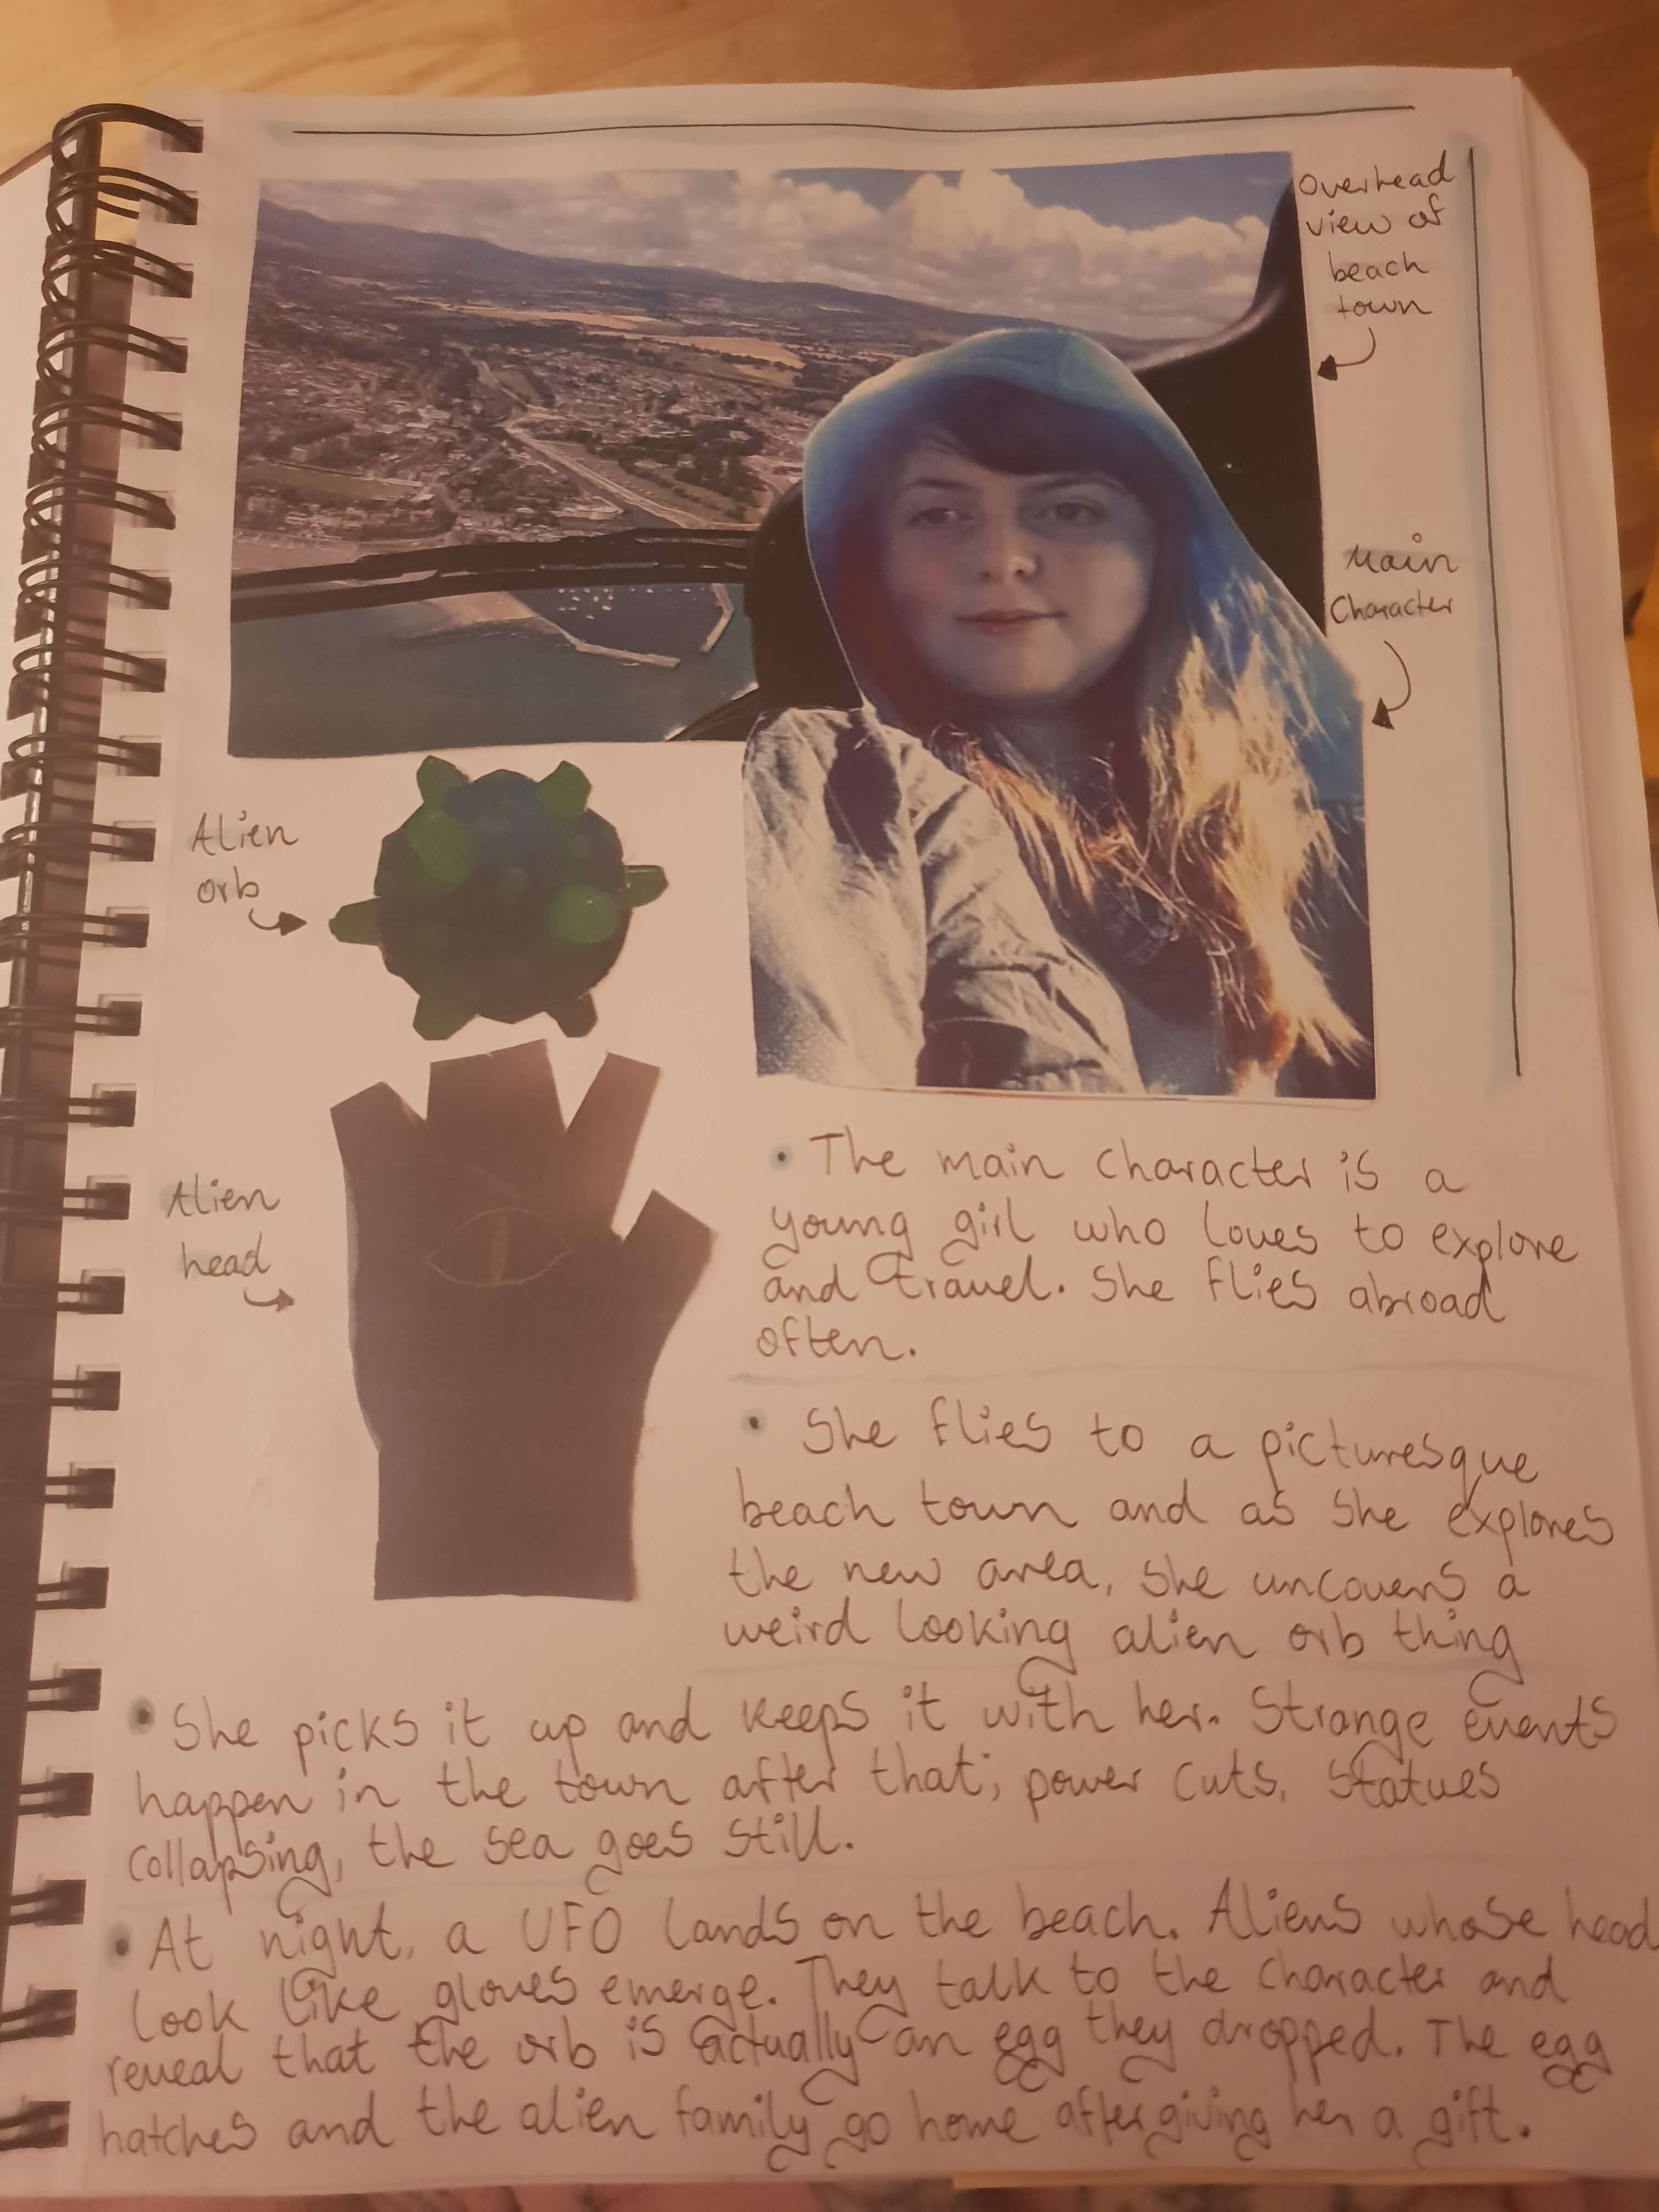 Overhead
view of
beach
town
Main
Character
Alien
orb
Alien
head
• The main character is a
young girl who loves to explore
and travel. She flies abroad
often.
• She flies to a picturesque
beach town and as she explores
the new area, she uncovers a
weird looking alien orb thing
• She picks it up and keeps it with her. Strange events
happen in the town after that; power cuts, statues
collapsing, the sea goes still.
• At night, a UFO lands on the beach. Aliens whose head
look like gloves emerge. They talk to the character and
reveal that the orb is actually an egg they dropped. The egg
hatches and the alien family go home after giving her a gift.